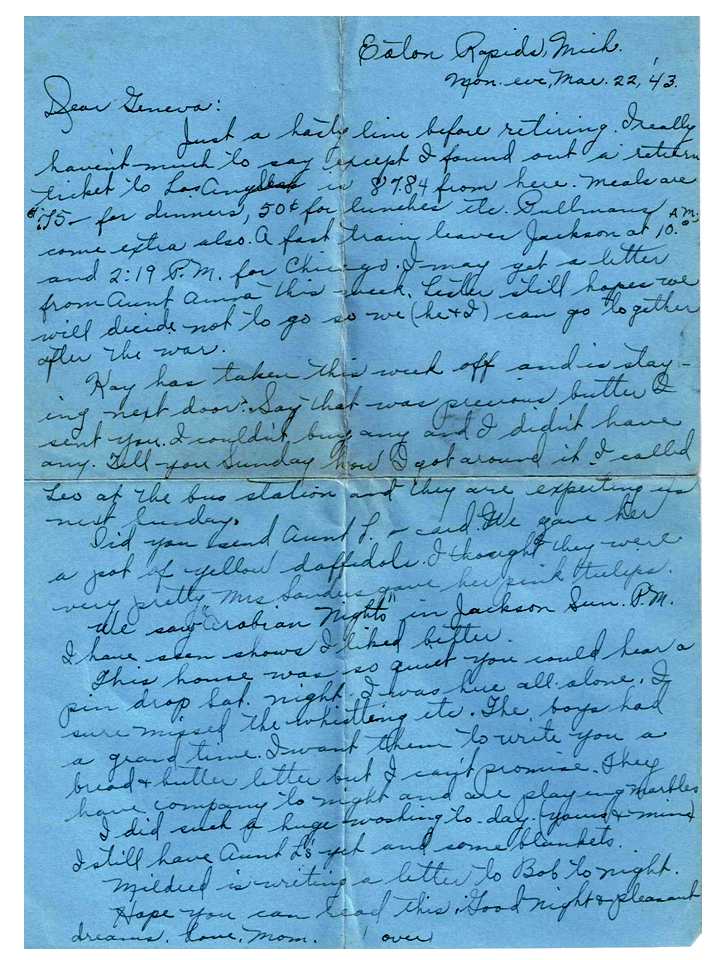 Eaton Rapids, Mich.
Mon. eve, Mar. 22, '43.
Dear Geneva:
Just a hasty line before retiring. I really
haven't much to say except I found out a return
ticket to Los Angeles is $87.84 from here. Meals are
$.75 - for dinners, 50¢ for lunches etc. Pullmans
come extra also. A fast train leaves Jackson at 10:00 A.M.
and 2:19 P.M. for Chicago. I may get a letter
from Aunt Anna this week. Lester still hopes we
will decide not to go so we (he & I) can go together
after the war.
Kay has taken this week off and is stay-
ing next door. Say that was precious butter I
sent you. I couldn't buy any and I didn't have
any. Tell you Sunday how I got around it. I called
Leo at the bus station and they are expecting us
next Sunday.
Did you send Aunt L. a card. We gave her
a pot of yellow daffidols. I thought they were
very pretty. Mrs Sanders gave her pink tulips.
We saw "Arabian Nights" in Jackson Sun. P.M.
I have seen shows I liked better.
This house was so quiet you could hear a
pin drop Sat. night. I was here all alone. I
sure missed the whistling etc. The boys had
a grand time. I want them to write you a
bread & butter letter but I can't promise. They
have company to night and are playing marbles
I did such a huge washing to-day. (yours & mine)
I still have Aunt L's yet and some blankets.
Mildred is writing a letter to Bob to night.
Hope you can read this. Good night & pleasant
dreams. Love, Mom. over